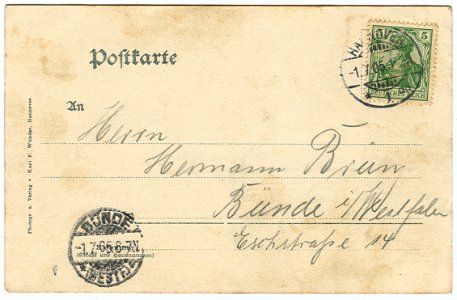 Postkarte
HANNOVER
5
-1.7.05.
An
Herrn
Hermann Brün
Bünde i/Westfalen
Eschstraße 14
BÜNDE
-1.7.05.6-7N.
WESTF.
Photogr. u. Verlag • Karl F. Wunder, Hannover.